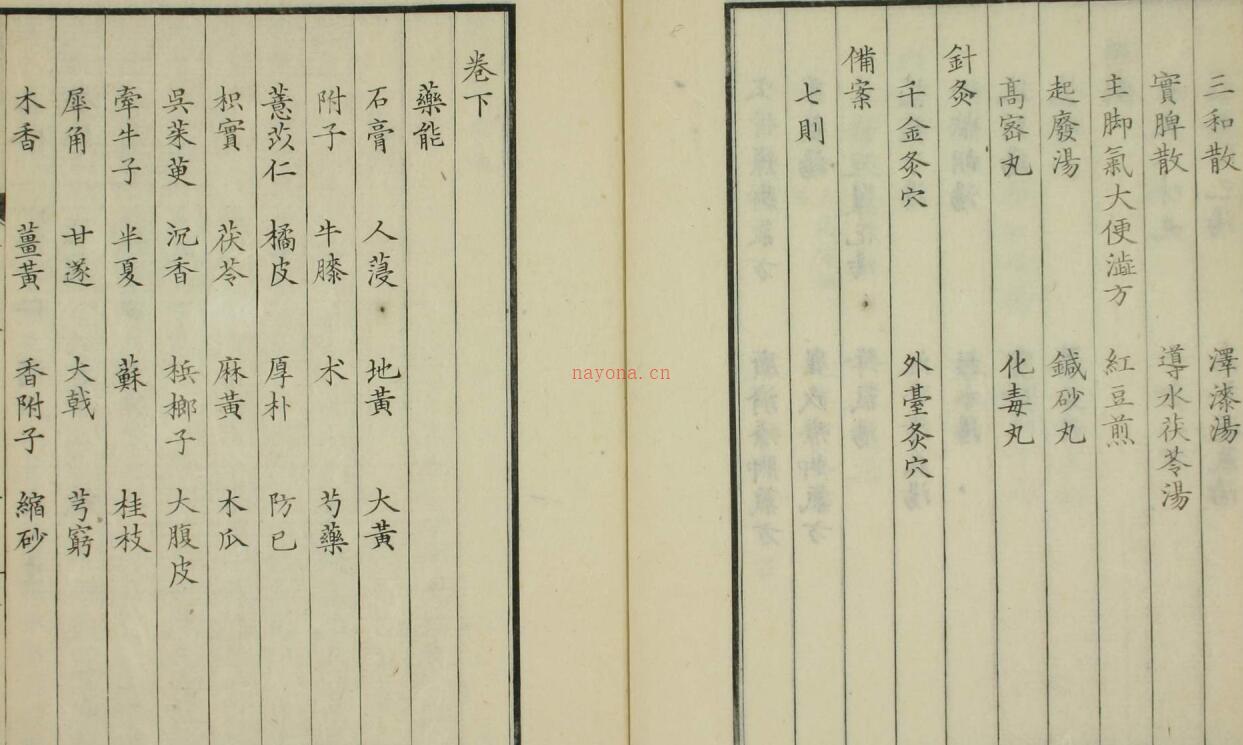 三和散 澤漆湯
實脾散 導水茯苓湯
主脚氣大便澁方 紅豆煎
起廢湯 鍼砂丸
髙宻丸 化毒丸
針灸
千金灸穴 外臺灸穴
備案
七則
卷下
藥能
石膏 人蓡 地黃 大黃
附子 牛膝 术 芍藥
薏苡仁 橘皮 厚朴 防已
枳實 茯苓 麻黃 木瓜
吳茱萸 沉香 梹榔子 大腹皮
牽牛子 半夏 蘇 桂枝
犀角 甘遂 大戟 芎窮
木香 薑黃 香附子 縮砂
nayona.cn